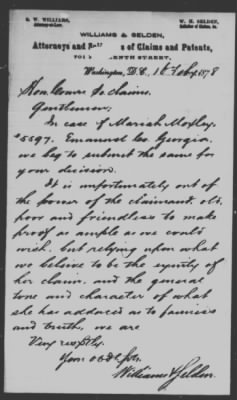 G. W. WILLIAMS,
Attorney-at-Law.
W. H. SELDEN,
Solicitor of Claims, &c.
WILLIAMS & SELDEN,
Attorneys and Sol of Claims and Patents,
ENTH STREET,
Washington, D.C., 1878
Hon. Comrs So. Claims.
Gentlemen:
In case of Mariah Moxley,
5597, Emanuel Co. Georgia,
we beg to submit the same for
your decision.
It is unfortunately out of
the power of the claimant, old,
poor and friendless to make
proof as ample as we could
wish, but relying upon what
we believe to be the equity of
her claim, and the general
tone and character of what
she has adduced as to fairness
and truth, we are
Very respy
Your obdt svts.
Williams & Selden.